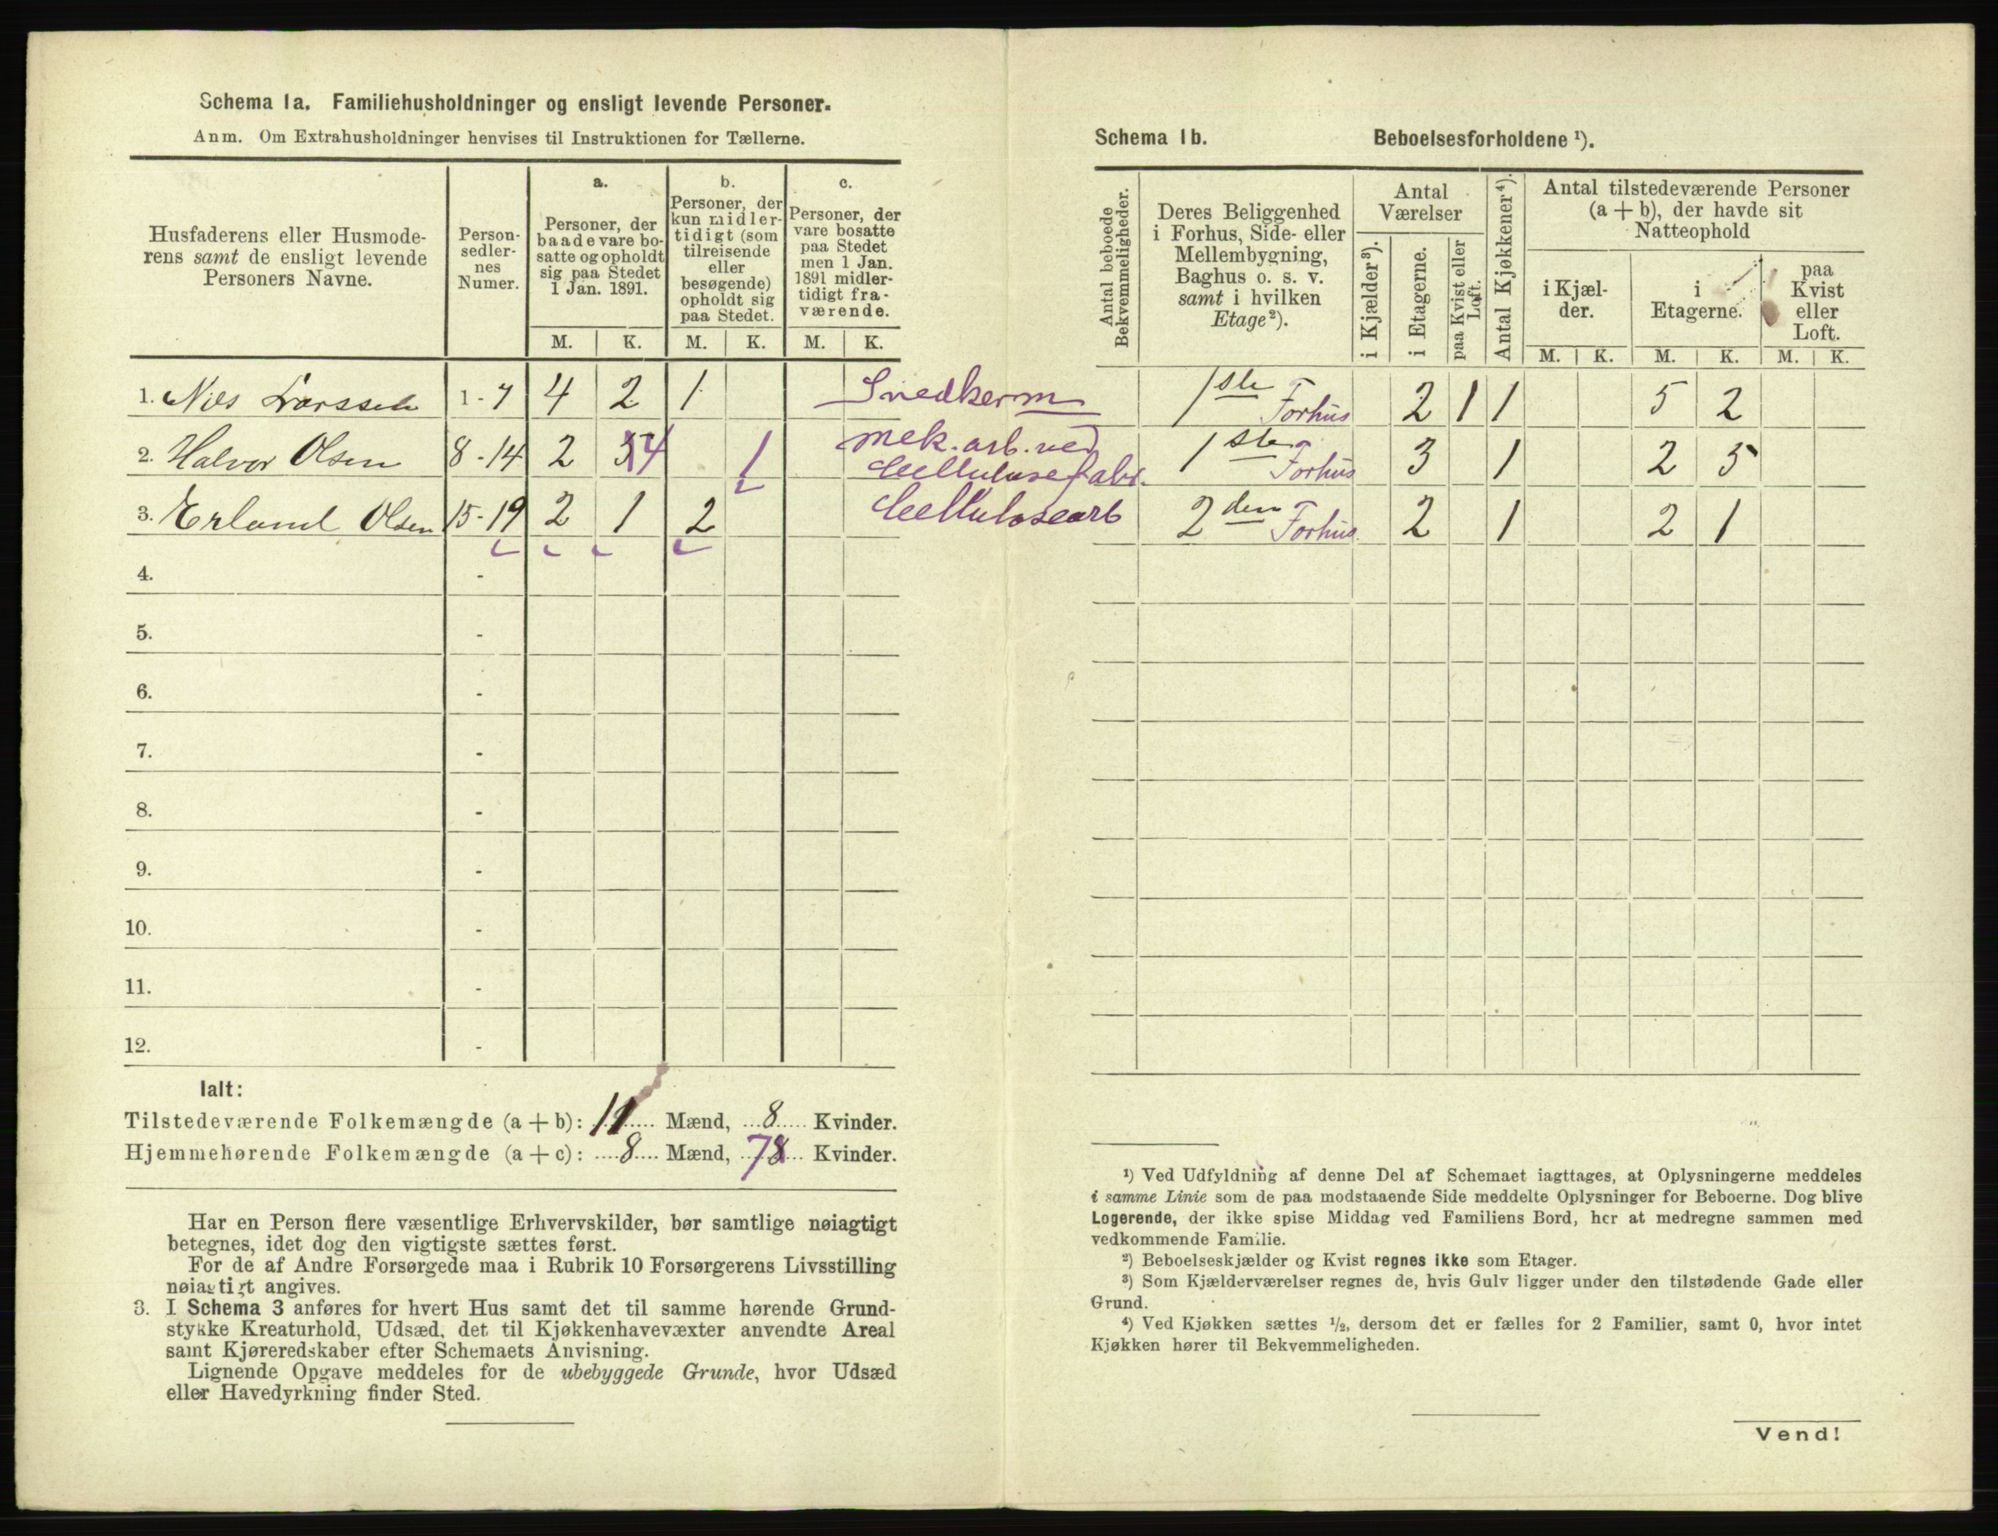 Schema 1a. Familiehusholdninger og ensligt levende Personer.
Anm. Om Extrahusholdninger henvises til Instruktionen for Tællerne.
Husfaderens eller Husmoderens samt de ensligt levende Personers Navne.
Personsedlernes Numer.
a.
Personer, der baade vare bosatte og opholdt sig paa Stedet 1 Jan. 1891.
b.
Personer, der kun midlertidigt (som tilreisende eller besøgende) opholdt sig paa Stedet.
c.
Personer, der vare bosatte paa Stedet men 1 Jan. 1891 midlertidigt fraværende.
M. K. M. K. M. K.
1. Nils Larssen 1-7 4 2 1 Snedkerm
2. Halvor Olsen 8-14 2 5 4 1 mek. arb. ved Cellulosefabr.
3. Erland Olsen 15-19 2 1 2 Cellulosearb
4. -
5. -
6. -
7. -
8. -
9. -
10. -
11. -
12. -
Ialt:
Tilstedeværende Folkemængde (a + b): 11 Mænd, 8 Kvinder.
Hjemmehørende Folkemængde (a + c): 8 Mænd, 7 8 Kvinder.
Har en Person flere væsentlige Erhvervskilder, bør samtlige nøiagtigt
betegnes, idet dog den vigtigste sættes først.
For de af Andre Forsørgede maa i Rubrik 10 Forsørgerens Livsstilling
nøiagtigt angives.
3. I Schema 3 anføres for hvert Hus samt det til samme hørende Grund-
stykke Kreaturhold, Udsæd, det til Kjøkkenhavevæxter anvendte Areal
samt Kjøreredskaber efter Schemaets Anvisning.
Lignende Opgave meddeles for de ubebyggede Grunde, hvor Udsæd
eller Havedyrkning finder Sted.
Schema 1b. Beboelsesforholdene ¹).
Antal beboede Bekvemmeligheder.
Deres Beliggenhed i Forhus, Side- eller Mellembygning, Baghus o. s. v. samt i hvilken Etage²).
Antal Værelser
i Kjælder³).
i Etagerne.
paa Kvist eller Loft.
Antal Kjøkkener⁴).
Antal tilstedeværende Personer (a + b), der havde sit Natteophold
i Kjælder.
i Etagerne.
paa Kvist eller Loft.
M. K. M. K. M. K.
1ste Forhus 2 1 1 5 2
1ste Forhus 3 1 2 5
2den Forhus 2 1 2 1
¹) Ved Udfyldning af denne Del af Schemaet iagttages, at Oplysningerne meddeles
i samme Linie som de paa modstaaende Side meddelte Oplysninger for Beboerne. Dog blive
Logerende, der ikke spise Middag ved Familiens Bord, her at medregne sammen med
vedkommende Familie.
²) Beboelseskjælder og Kvist regnes ikke som Etager.
³) Som Kjælderværelser regnes de, hvis Gulv ligger under den tilstødende Gade eller
Grund.
⁴) Ved Kjøkken sættes ½, dersom det er fælles for 2 Familier, samt 0, hvor intet
Kjøkken hører til Bekvemmeligheden.
Vend!